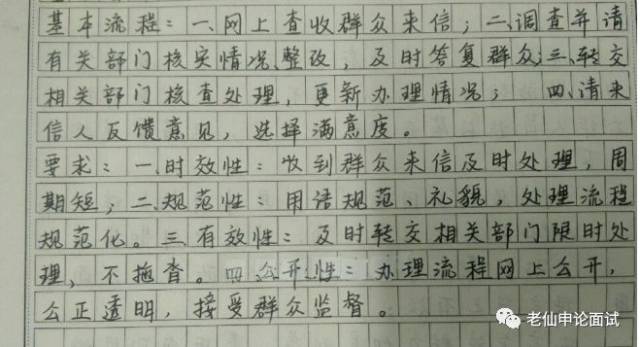 基本流程：一、网上查收群众来信；二、调查并请
有关部门核实情况、整改，及时答复群众；三、转交
相关部门核查处理，更新办理情况；四、请来
信人反馈意见，选择满意度。
要求：一、时效性：收到群众来信及时处理，周
期短；二、规范性：用语规范、礼貌，处理流程
规范化。三、有效性：及时转交相关部门限时处
理，不拖沓。四、公开性：办理流程网上公开，
公正透明，接受群众监督。
老仙申论面试